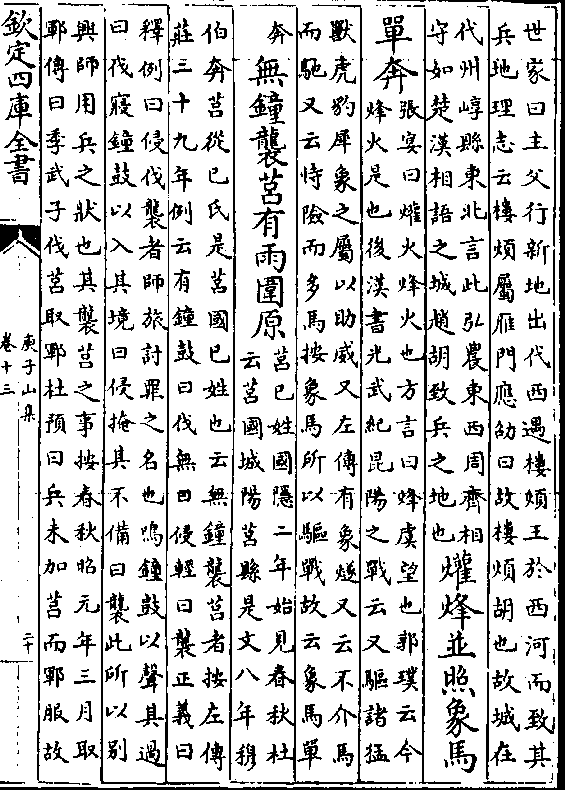 世家曰主父行新地出代西遇樓煩王於西河而致其
兵地理志云樓煩屬雁門應劭曰故樓煩胡也故城在
代州崞縣東北言此弘農東西周齊相
守如楚漢相語之城趙胡致兵之地也
爟烽並照象馬
單奔
張宴曰爟火烽火也方言曰烽虞望也郭璞云今
烽火是也後漢書光武紀昆陽之戰云又驅諸猛
獸虎豹犀象之屬以助威又左傳有象燧又云不介馬
而馳又云恃險而多馬按象馬所以驅戰故云象馬單
奔
無鐘襲莒有雨圍原
莒已姓國隱二年始見春秋杜
云莒國城陽莒縣是文八年穆
伯奔莒從已氏是莒國已姓也云無鐘襲莒者按左傳
莊三十九年例云有鐘鼓曰伐無曰侵輕曰襲正義曰
釋例曰侵伐襲者師旅討罪之名也鳴鐘鼓以聲其過
曰伐寢鐘鼓以入其境曰侵掩其不備曰襲此所以别
興師用兵之狀也其襲莒之事按春秋昭元年三月取
鄆傳曰季武子伐莒取鄆杜預曰兵未加莒而鄆服故
欽定四庫全書
庾子山集
卷十三
二十